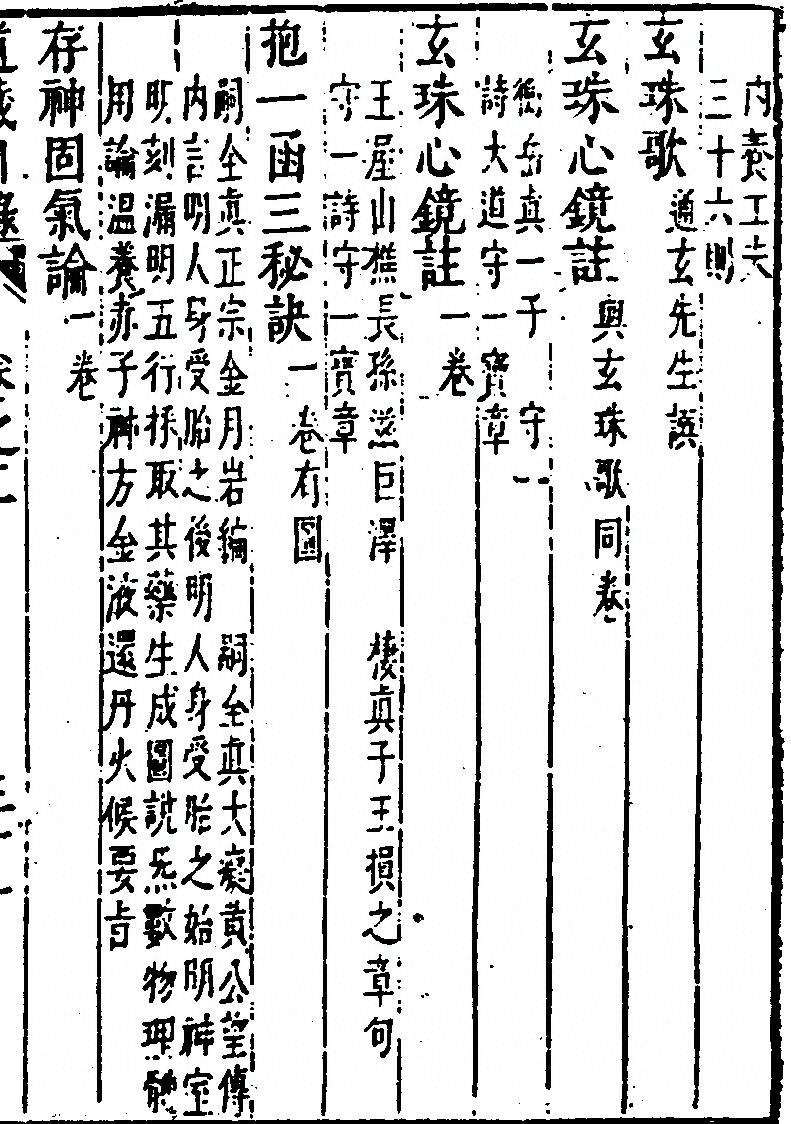 內養工夫
三十六則
玄珠歌 通玄先生譔
玄珠心鏡註 與玄珠歌同卷
衡岳真一子 守一
詩大道守一寶章
玄珠心鏡註 一卷
王屋山樵長孫滋巨澤 棲真子王損之章句
守一詩守一寶章
抱一函三秘訣 一卷有圖
嗣全真正宗金月岩編 嗣全真大癡黃公望傳
內言明人身受胎之後明人身受胎之始明神室
明刻漏明五行採取其藥生成圖說炁數物理體
用論溫養赤子神方金液還丹火候要旨
存神固氣論 一卷